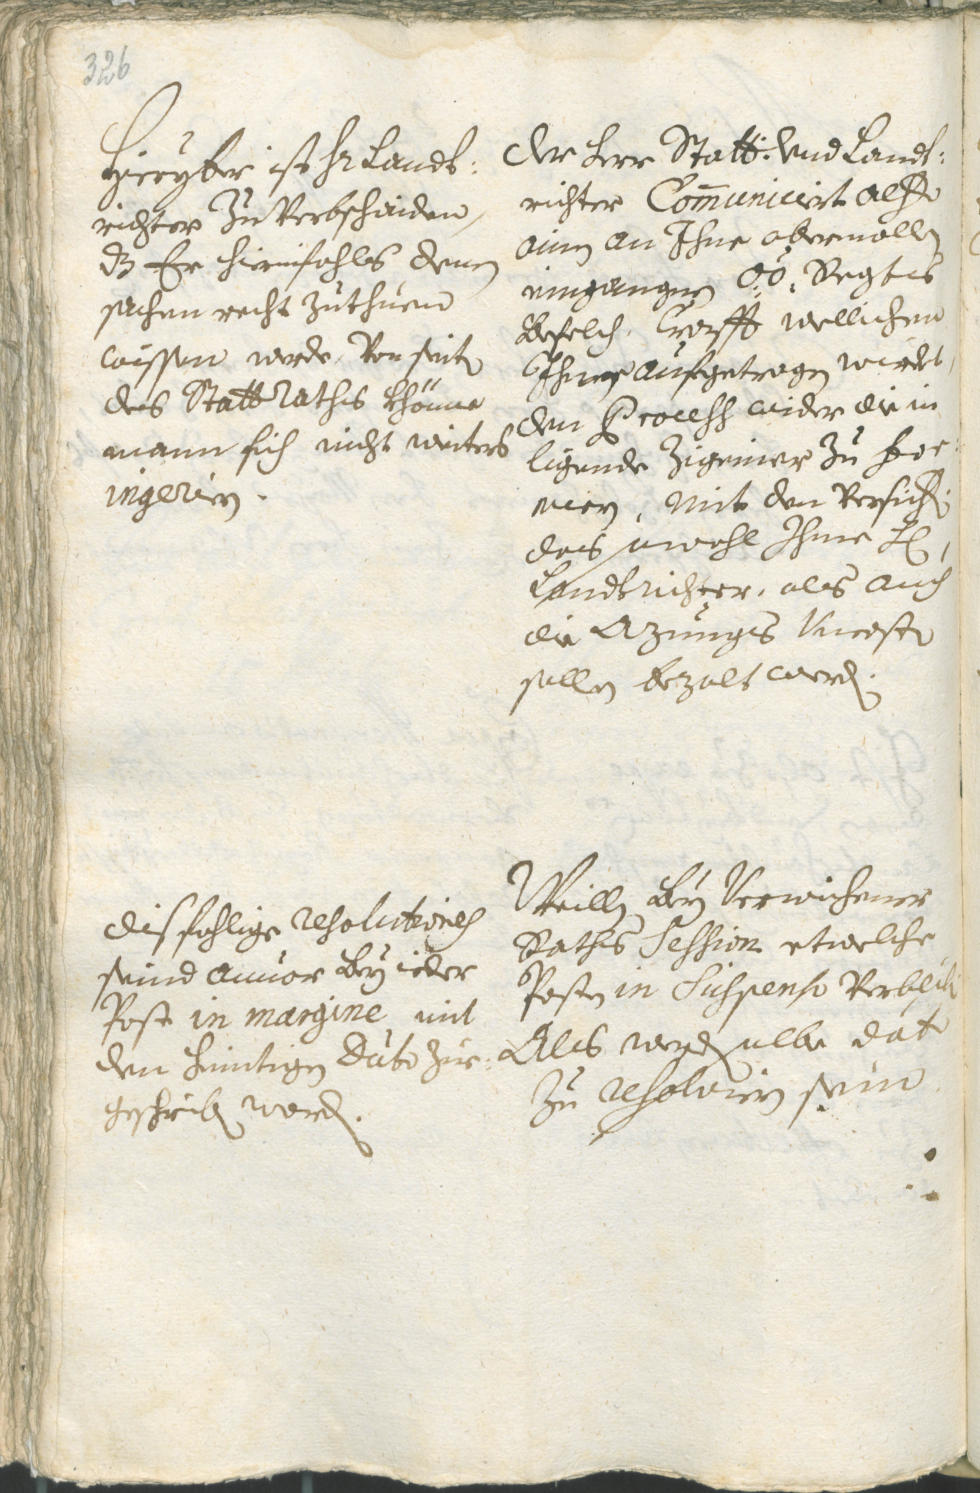 326
Hieryber ist Hr Landt:
richter Zu Verbschaiden,
dz Er hierinfahls denen
sachen recht Zuthuen
wissen werde, Von seit
des Statt Raths khönne
mann sich nicht weiters
ingerirn.
Der Herr Statt: Vnd Landt:
richter Communicirt
ainen an Ihne abermallen
eingangnen OÖ: Regts
Befelch, Crafft wellichen
Ihme aufgetragen wirdet,
den Process wider die in
ligende Zigeiner Zu for
miern, mit den Versich:
das sowohl Ihme H
Landtrichter, als auch
die Azungs Vncosten
sollen bezalt werd.
Disfahlige resolutiones
seind anuor bey ieder
Post in margine mit
den heintigen Dato Zue:
geschriben word.
Weillen bey Verwichener
Raths Session etwelche
Posten in Suspenso Verblib
Als werden selbe dato
Zu resolviern sein.